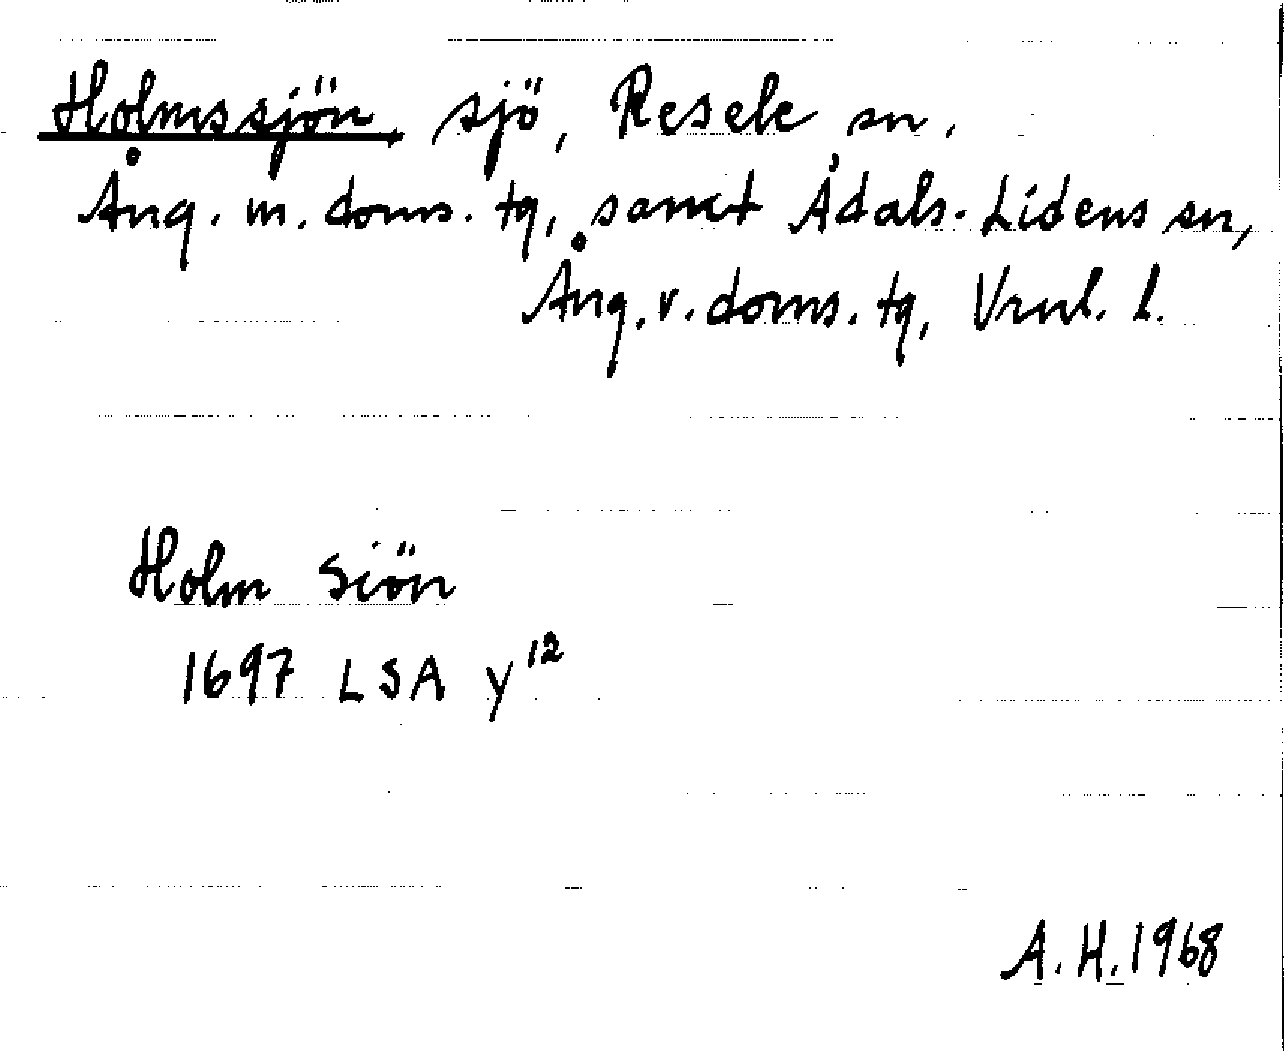 Holmssjön, sjö, Resele sn,
Ång. m. doms. tg, samt Ådals-Lidens sn,
Ång. v. doms. tg, Vrnl. l.
Holm Siön
1697 LSA y¹²
A. H. 1968